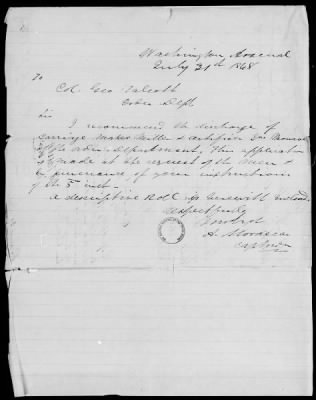 Washington Arsenal
July 31th 1848
To
Col. Geo Talcott
Ordn Dept
Sir
I recommend the discharge of
Carriage Maker Miller & artificer
Ordn. Department, This application
is made at the request of the men &
in pursuance of your instructions
of the 5th inst.
A descriptive Roll is herewith enclosed.
respectfully
A. Mordecai
Capt Ordn